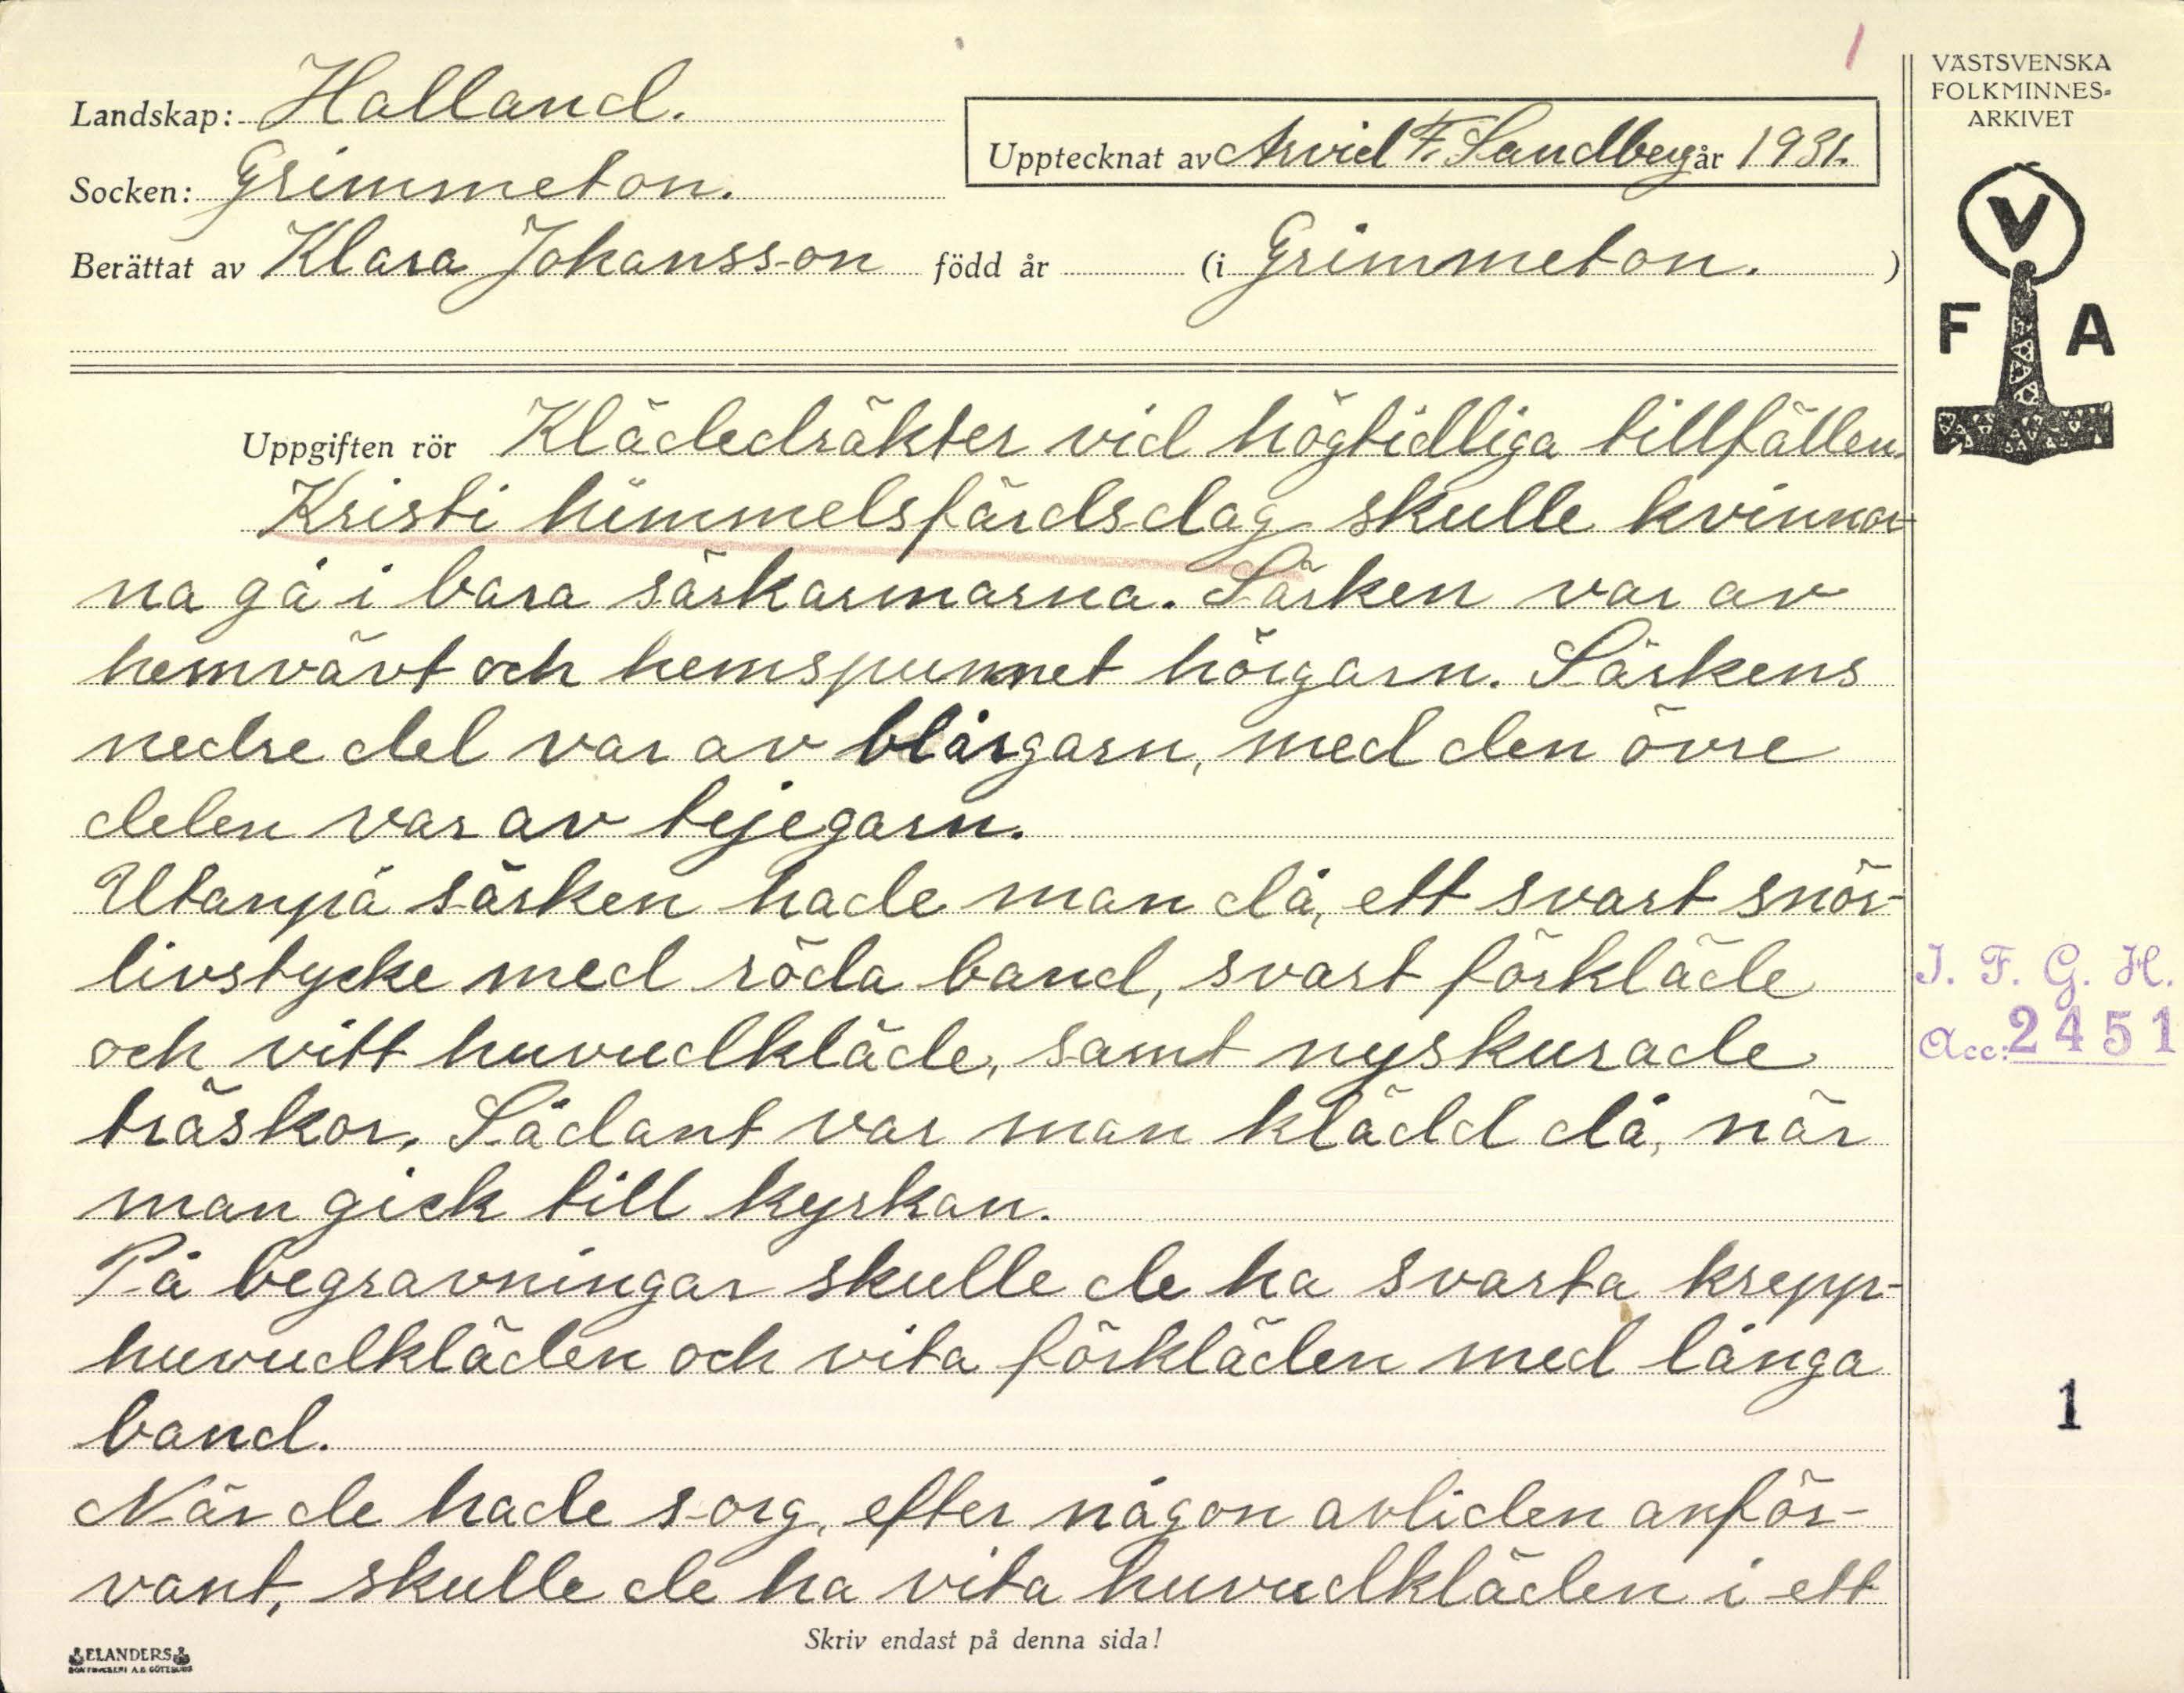 1
Landskap: Halland.
Upptecknat av Arvid F. Sandberg år 1931.
Socken: Grimmeton.
Berättat av Klara Johansson född år (i Grimmeton. )
VÄSTSVENSKA
FOLKMINNES-
ARKIVET
V
F A
Uppgiften rör Klädedräkter vid högtidliga tillfällen.
Kristi himmelsfärdsdag skulle kvinnor-
na gå i bara särkarmarna. Särken var av
hemvävt och hemspunnet hörgarn. Särkens
nedre del var av blårgarn, med den övre
delen var av tejegarn.
Utanpå särken hade man då, ett svart snör-
livstycke med röda band, svart förkläde
och vitt huvudkläde, samt nyskurade
träskor. Sådant var man klädd då, när
man gick till kyrkan.
På begravningar skulle de ha svarta krepp-
huvudkläden och vita förkläden med långa
band.
När de hade sorg, efter någon avliden anför-
vant, skulle de ha vita huvudkläden i ett
Skriv endast på denna sida!
ELANDERS
BOKTRYCKERI A.B. GÖTEBORG
I. F. G. H.
Acc: 2451
1